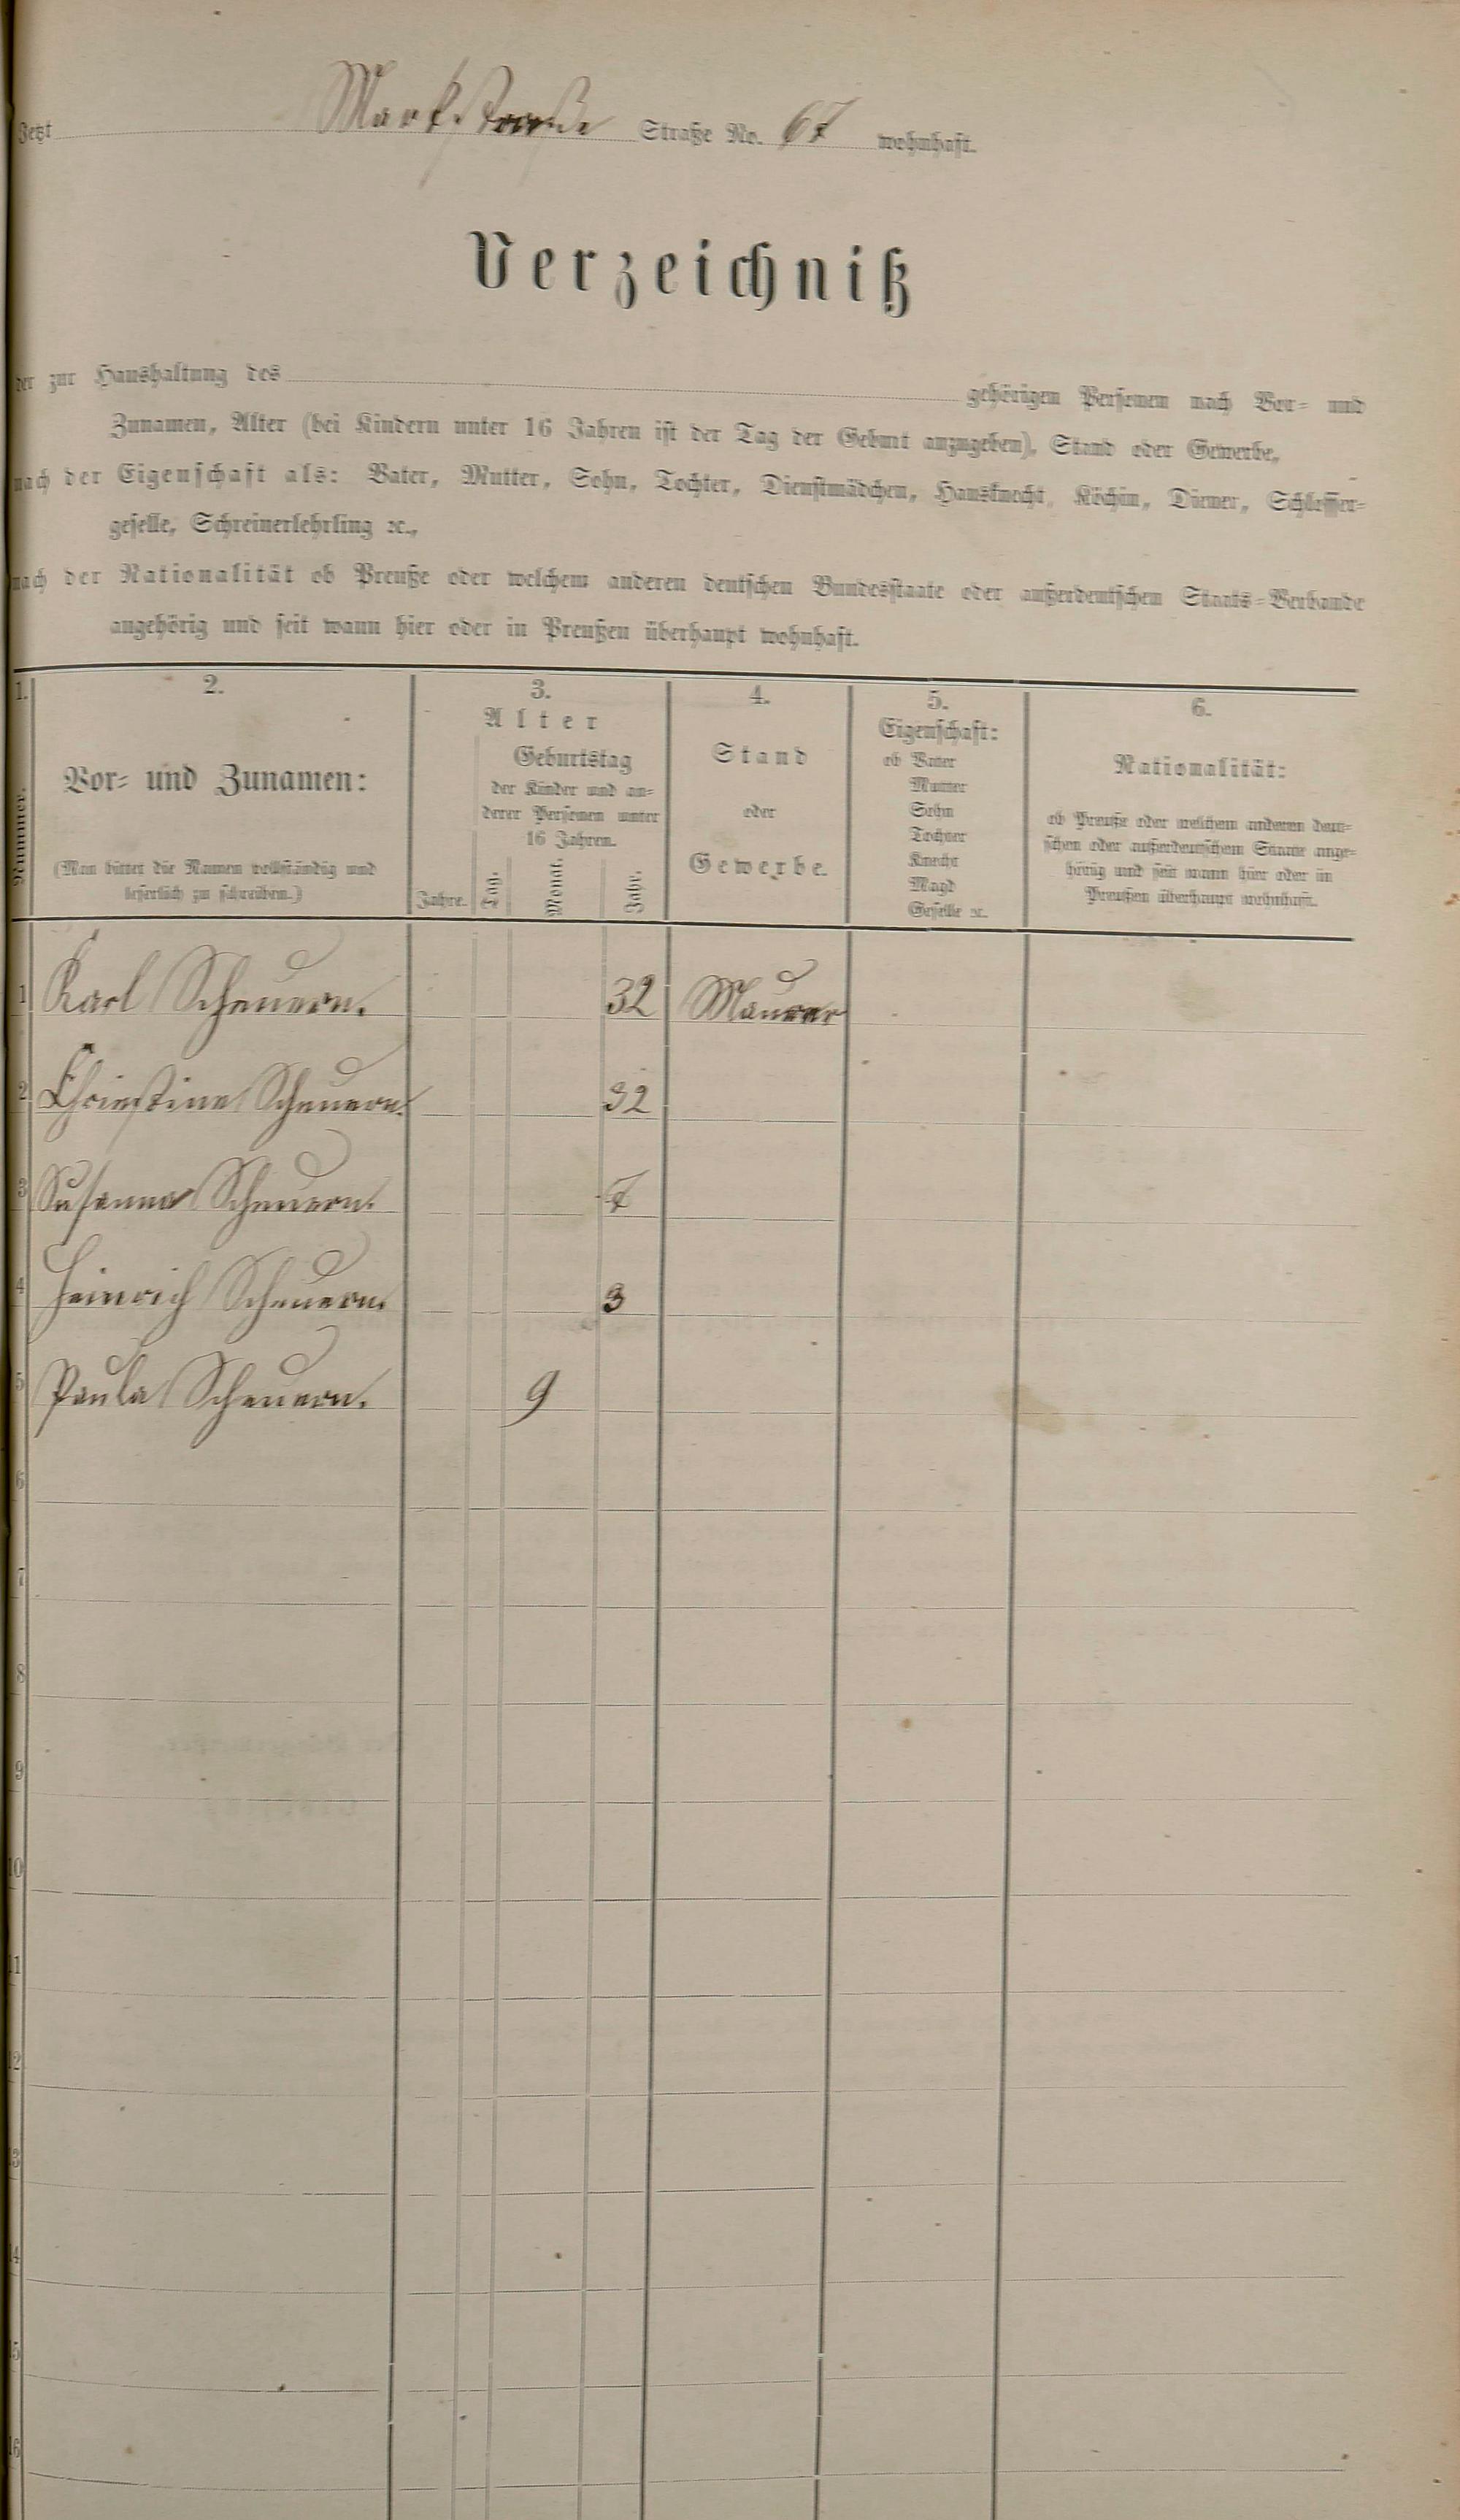 Jetzt Markstraße Straße No. 67 wohnhaft.
Verzeichniß
der zur Haushaltung des gehörigen Personen nach Vor- und
Zunamen, Alter (bei Kindern unter 16 Jahren ist der Tag der Geburt anzugeben), Stand oder Gewerbe,
nach der Eigenschaft als: Vater, Mutter, Sohn, Tochter, Dienstmädchen, Hausknecht, Köchin, Diener, Schlosser-
geselle, Schreinerlehrling ꝛc.,
nach der Nationalität ob Preuße oder welchem anderen deutschen Bundesstaate oder außerdeutschen Staats-Verbande
angehörig und seit wann hier oder in Preußen überhaupt wohnhaft.
1. 2. 3. 4. 5. 6.
Nummer.
Vor- und Zunamen:
(Man bittet die Namen vollständig und
leserlich zu schreiben.)
Alter
Geburtstag
der Kinder und an-
derer Personen unter
16 Jahren.
Jahre. Tag. Monat. Jahr.
Stand
oder
Gewerbe.
Eigenschaft:
ob Vater
Mutter
Sohn
Tochter
Knecht
Magd
Geselle ꝛc.
Nationalität:
ob Preuße oder welchem anderen deut-
schen oder außerdeutschen Staate ange-
hörig und seit wann hier oder in
Preußen überhaupt wohnhaft.
1 Karl Scheuern. 32 Maurer
2 Christine Scheuern. 32
3 Susanna Scheuern. 7
4 Heinrich Scheuern. 3
5 Paula Scheuern. 9
6
7
8
9
10
11
12
13
14
15
16